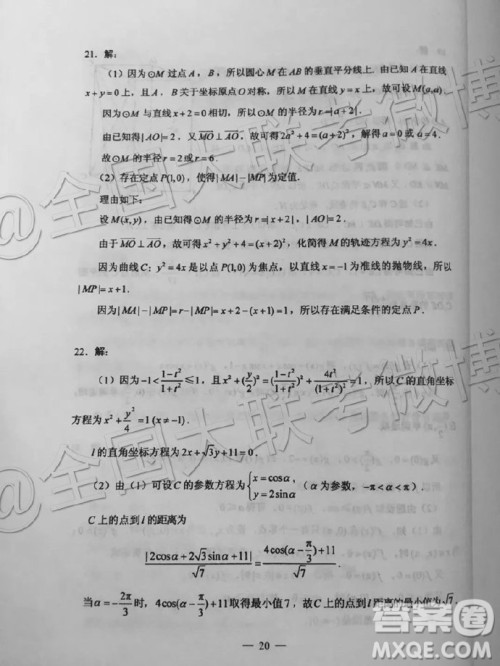 21．解：
（1）因为⊙M 过点 A，B，所以圆心 M 在 AB 的垂直平分线上．由已知 A 在直线
x+y=0 上，且 A．B 关于坐标原点 O 对称，所以 M 在直线 y=x 上，故可设 M(a,a)
因为⊙M 与直线 x+2=0 相切，所以⊙M 的半径为 r=|a+2|．
由已知得|AO|=2．又 MO⊥AO．故可得 2a²+4=(a+2)²，解得 a=0 或 a=4.
故⊙M 的半径 r=2 或 r=6．
（2）存在定点 P(1,0)，使得|MA|−|MP|为定值．
理由如下：
设 M(x,y)，由已知得⊙M 的半径为 r=|x+2|，|AO|=2．
由于 MO⊥AO，故可得 x²+y²+4=(x+2)²，化简得 M 的轨迹方程为 y²=4x．
因为曲线 C：y²=4x 是以点 P(1,0)为焦点，以直线 x=−1 为准线的抛物线，所以
|MP|=x+1．
因为|MA|−|MP|=r−|MP|=x+2−(x+1)=1，所以存在满足条件的定点 P．
22．解：
（1）因为−1<(1−t²)/(1+t²)≤1，且 x²+(y/2)²=((1−t²)/(1+t²))²+4t²/(1+t²)²=1，所以 C 的直角坐标
方程为 x²+y²/4=1(x≠−1)．
l 的直角坐标方程为 2x+√3y+11=0．
（2）由（1）可设 C 的参数方程为{x=cosα, y=2sinα（α 为参数，−π<α<π）．
C 上的点到 l 的距离为
|2cosα+2√3sinα+11|/√7=(4cos(α−π/3)+11)/√7．
当 α=−2π/3 时，4cos(α−π/3)+11 取得最小值 7，故 C 上的点到 l 距离的最小值为√7．
— 20 —
@全国大联考微博
@全国大联考微博
答案圈
MXQE.COM